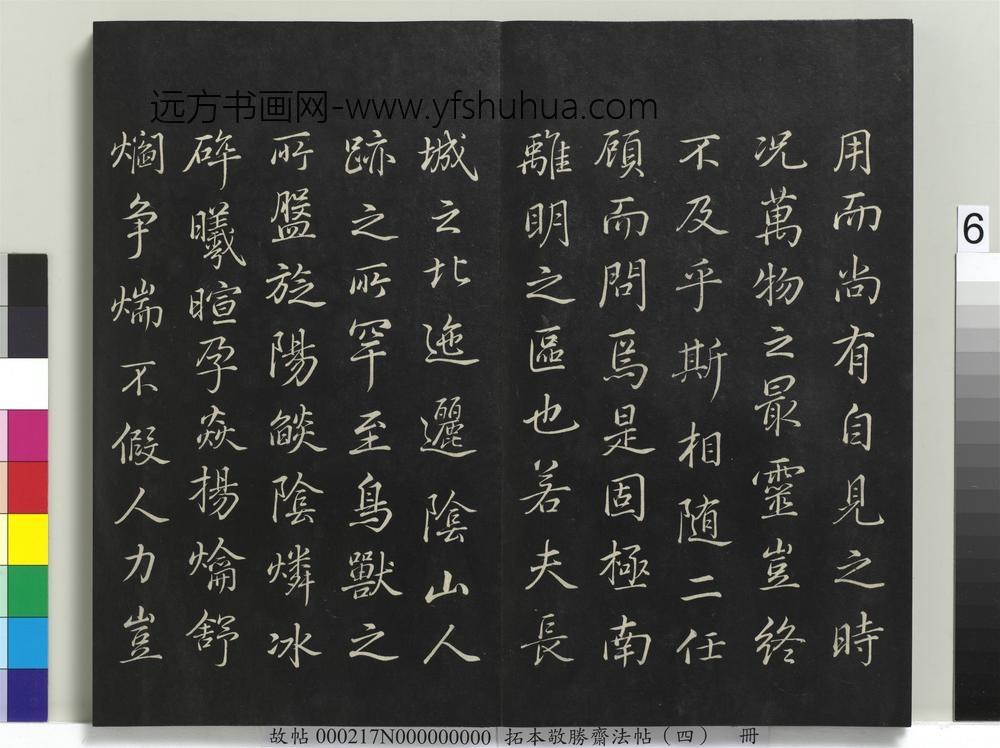 远方书画网-www.yfshuhua.com
用而尚有自見之時
况萬物之最靈豈終
不及乎斯相随二任
頋而問焉是固極南
離明之區也若夫長
城之北迤邐陰山人
跡之所罕至鳥獸之
所盤旋陽燄陰燐冰
碎曦暄孕焱揚爚舒
爓争煓不假人力豈
6
故帖 000217N000000000 拓本敬勝齋法帖（四） 冊